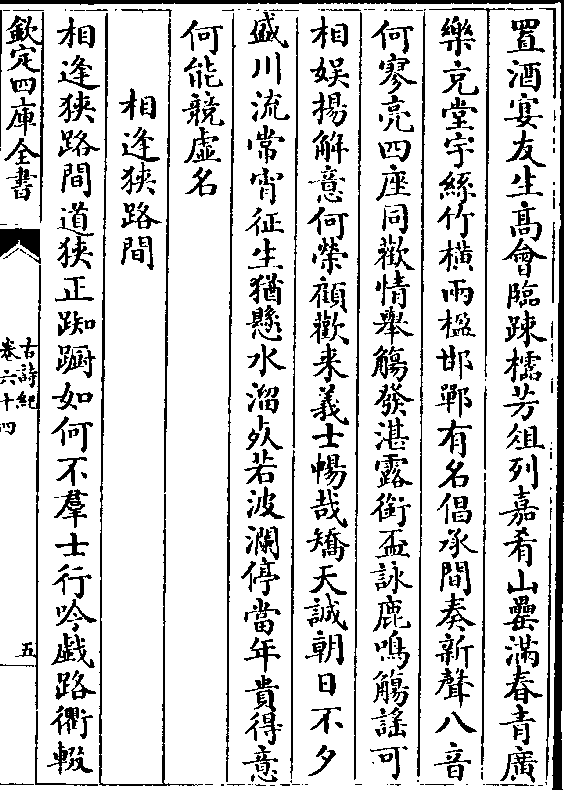 置酒宴友生髙㑹臨踈櫺芳俎列嘉肴山罍滿春青廣
樂充堂宇絲竹橫兩楹邯鄲有名倡承間奏新聲八音
何寥亮四座同歡情舉觴發湛露銜盃詠鹿鳴觴謡可
相娱揚解意何榮顧歡来義士暢哉矯天誠朝日不夕
盛川流常宵征生猶懸水溜死若波瀾停當年貴得意
何能競虚名
相逢狹路間
相逢狹路間道狹正踟蹰如何不羣士行吟戯路衢輟
欽定四庫全書
古詩紀
卷六十四
五